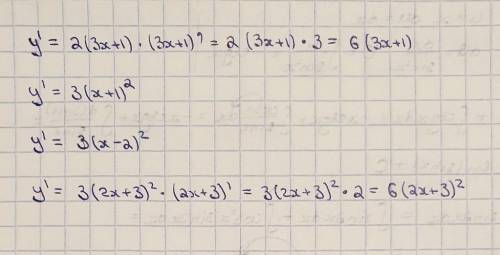 y' = 2(3x+1) · (3x+1)' = 2 (3x+1) · 3 = 6 (3x+1)
y' = 3(x+1)²
y' = 3(x-2)²
y' = 3(2x+3)² · (2x+3)' = 3(2x+3)² · 2 = 6(2x+3)²